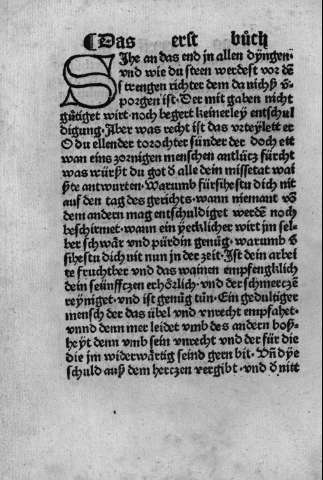 ¶ Das erst bůch
SJhe an das end in allen dyngen·
vnd wie du steen werdest vor dē
strengen richter dem da nichß v̄
porgen ist· Der mit gaben nicht
gůtiget wirt noch begert keinerley entschul
digung. Aber was recht ist das vrteylett er
O du ellender torochter sünder der doch ett
wan eins zornigen menschen antlütz fürcht
was würßt du got d̄ alle dein missetat wai
ßte antwurten· Warumb fürsihestu dich nit
auf den tag des gerichts· wann niemant vō
dem andern mag entschuldiget werdē noch
beschirmet· wann ein yecklicher wirt jm sel-
ber schwår vnd pürdin genůg· warumb v̄
sihestu dich nit nun in der zeit· Jst dein arbei
te fruchtber vnd das wainen empfengklich
dein seünffczen erhőzlich· vnd der schmerczē
reyniget· vnd ist genůg tůn· Ein gedultiger
mensch der das übel vnd vnrecht empfahet·
vnnd denn mer leidet vmb des andern boß-
heyt denn vmb sein vnrecht vnd der für die
die jm widerwårtig seind gern bit· Vn̄ dye
schuld auß dem herczen vergibt· vnd d̄ nitt